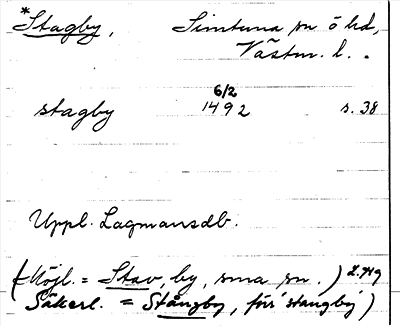 *Stagby, Simtuna sn ö hd,
Västm. l.
6/2
stagby 1492 s. 38
Uppl. Lagmansdb.
(Möjl. = Stav, by, sma sn.)
Säkerl. = Stångby, för 'stangby')